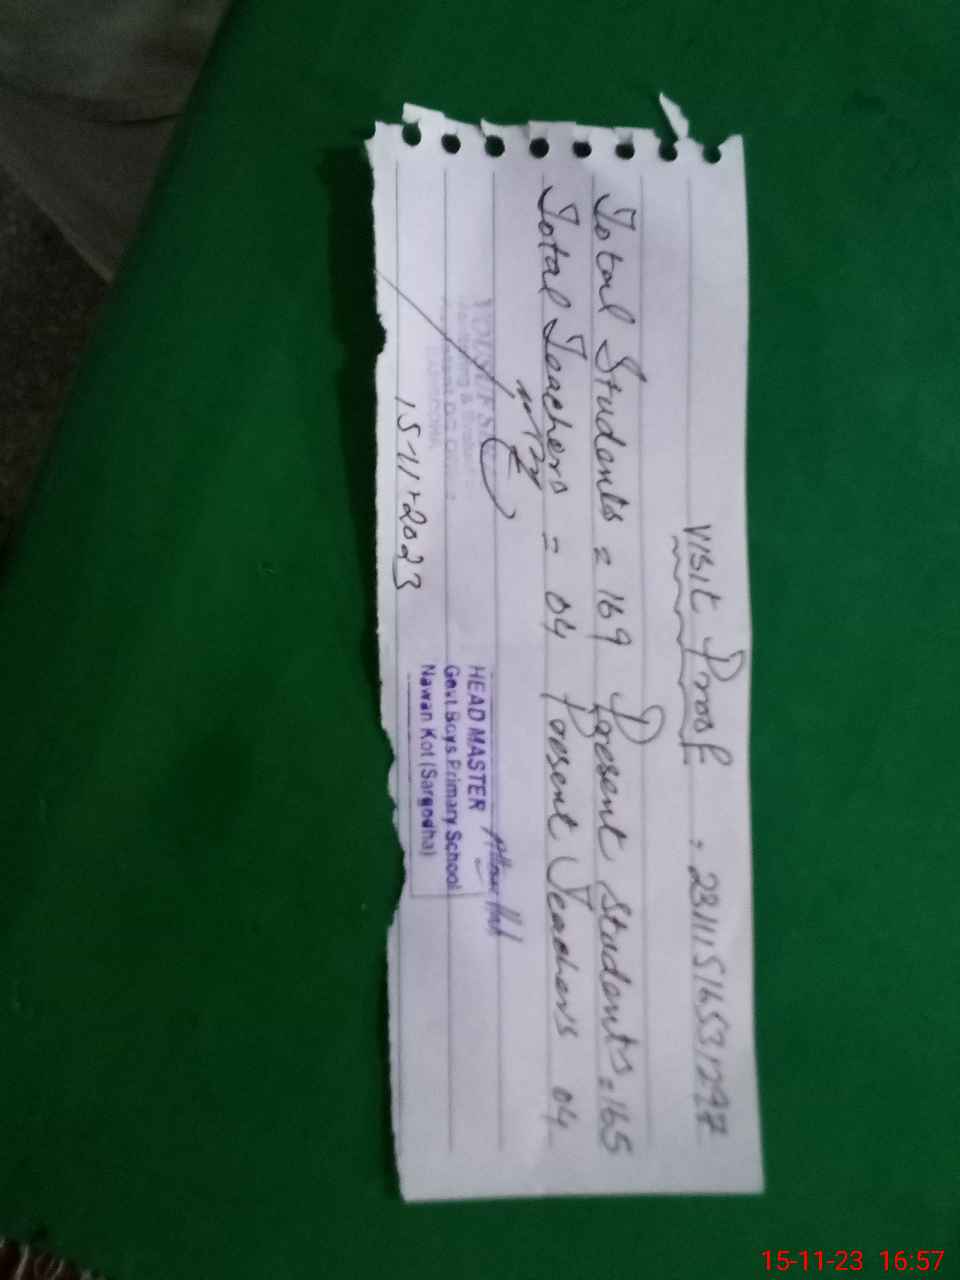 Visit Proof : 23111516531297
Total Students = 169 Present Students = 165
Total Teachers = 04 Present Teachers 04
15-11-2023
HEAD MASTER
Govt.Boys Primary School
Nawan Kot (Sargodha)
15-11-23 16:57